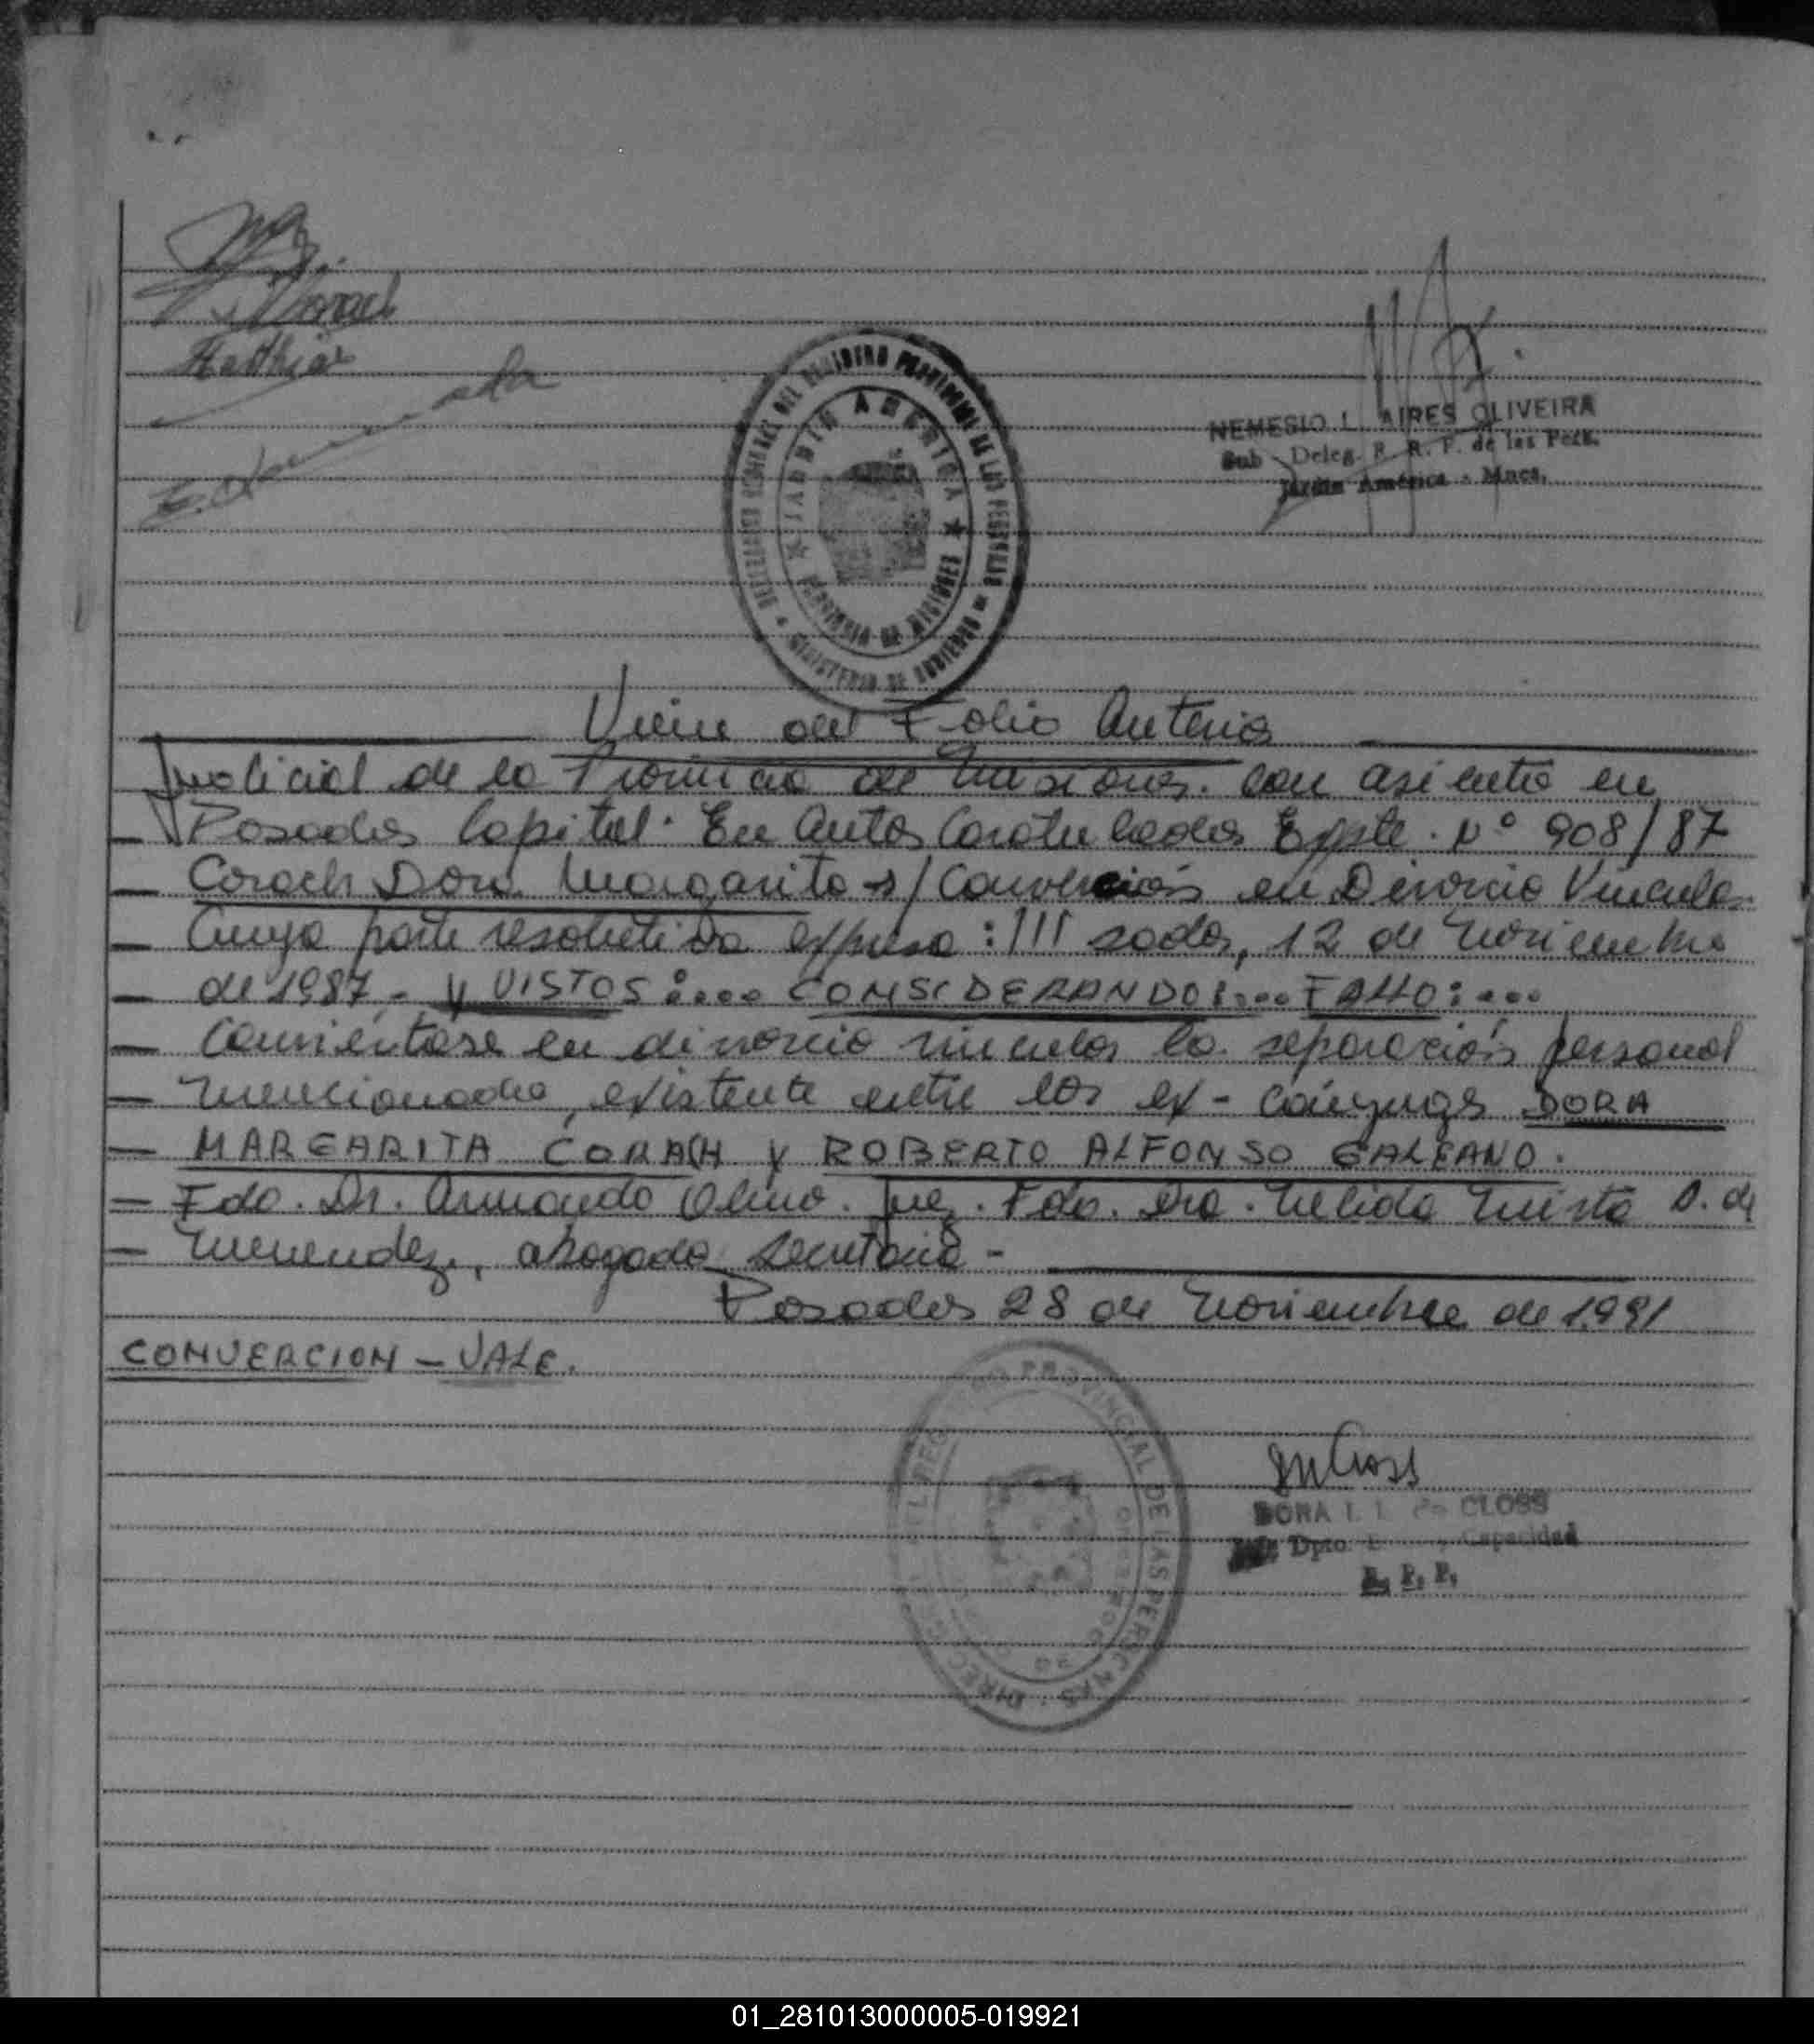 Corach
Mathias
NEMESIO L. AIRES OLIVEIRA
Sub - Deleg. R. R. P. de las Pers.
Jardín América - Mnes.
DELEGACION DEL REGISTRO PROVINCIAL DE LAS PERSONAS
MINISTERIO DE GOBIERNO
JARDIN AMERICA
PROVINCIA DE MISIONES
Viene del Folio Anterio
Judicial de la Provincia de Misiones. con asiento en
Posadas Capital. En Autos Caratulados Expte. Nº 908/87
Corach Dora Margarita s/ Conversión en Divorcio Vincular
Cuya parte resolutiva expresa: /// sadas, 12 de Noviembre
de 1987. Y VISTOS:.... CONSIDERANDO:... FALLO:...
Conviértase en divorcio vincular la separación personal
mencionada, existente entre los ex-cónyuges DORA
MARGARITA CORACH Y ROBERTO ALFONSO GALEANO.
Fdo. Dr. Armando Olmo. Juez. Fdo. Dra. Nelida Mirta D. de
Menendez, abogada Secretaria -
Posadas 28 de Noviembre de 1.991
CONVERCION - VALE.
PROVINCIAL DE LAS PERSONAS
DORA I. L. de CLOSS
Dpto. Capacidad
R. P. P.
01_281013000005-019921